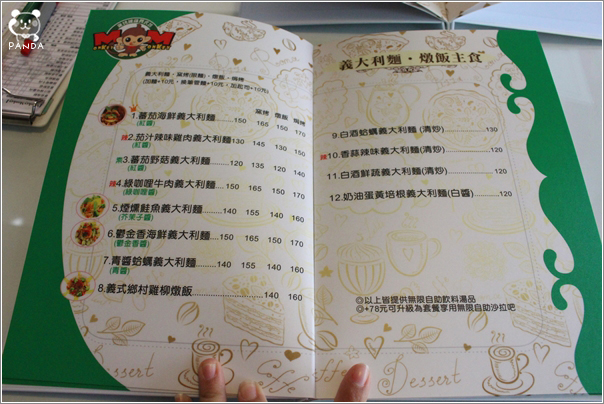 PANDA
MOM
義大利麵、焗烤(限麵)、燉飯、焗烤
(加麵+10元, 換筆管麵+10元, 加起司+10元)
焗烤 燉飯 焗烤
1.蕃茄海鮮義大利麵......150 165 150 170
(紅醬)
辣2.茄汁辣味雞肉義大利麵130 145 130 150
(紅醬)
素3.蕃茄野菇義大利麵......120 135 120 140
(紅醬)
辣4.綠咖哩牛肉義大利麵...150 165 150 170
(綠咖哩醬)
5.煙燻鮭魚義大利麵......140 155 140 160
(芥茉子醬)
6.鬱金香海鮮義大利麵...150 165 150 170
(鬱金香醬)
7.青醬蛤蠣義大利麵......140 155 140 160
(青醬)
8.義式鄉村雞柳燉飯...... 140 160
義大利麵・燉飯主食
9.白酒蛤蠣義大利麵(清炒)......130
辣10.香蒜辣味義大利麵(清炒)......120
11.白酒鮮蔬義大利麵(清炒)......120
12.奶油蛋黃培根義大利麵(白醬)......120
◎以上皆提供無限自助飲料湯品
◎+78元可升級為套餐享用無限自助沙拉吧
Dessert Coffee Dessert